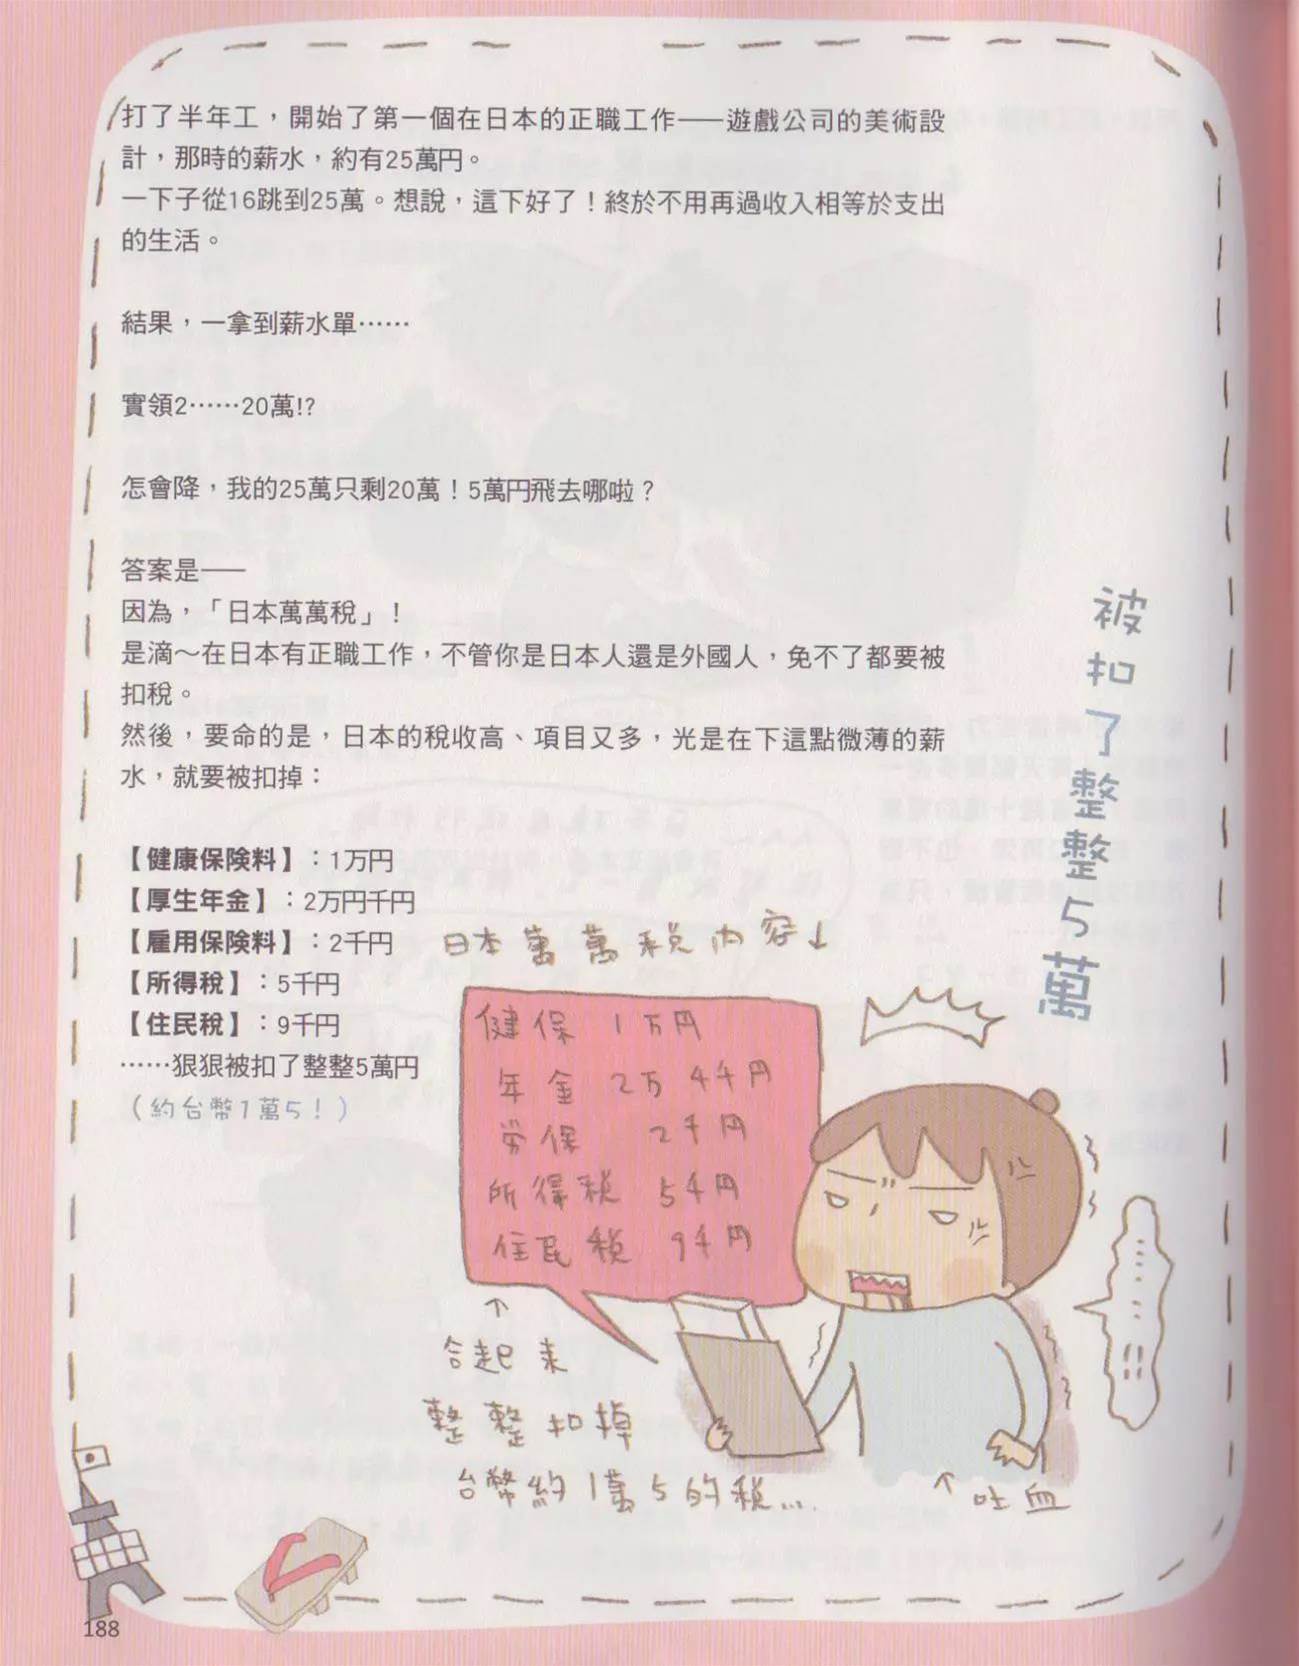 打了半年工，開始了第一個在日本的正職工作——遊戲公司的美術設
計，那時的薪水，約有25萬円。
一下子從16跳到25萬。想說，這下好了！終於不用再過收入相等於支出
的生活。
結果，一拿到薪水單……
實領2……20萬!?
怎會降，我的25萬只剩20萬！5萬円飛去哪啦？
答案是——
因為，「日本萬萬稅」！
是滴～在日本有正職工作，不管你是日本人還是外國人，免不了都要被
扣稅。
然後，要命的是，日本的稅收高、項目又多，光是在下這點微薄的薪
水，就要被扣掉：
【健康保険料】：1万円
【厚生年金】：2万円千円
【雇用保険料】：2千円
【所得稅】：5千円
【住民稅】：9千円
……狠狠被扣了整整5萬円
（約台幣1萬5！）
被扣了整整5萬
日本萬萬稅內容↓
健保 1万円
年金 2万4千円
労保 2千円
所得税 5千円
住民税 9千円
↑
合起来
整整扣掉
台幣約1萬5的税…
……!!
↑吐血
188